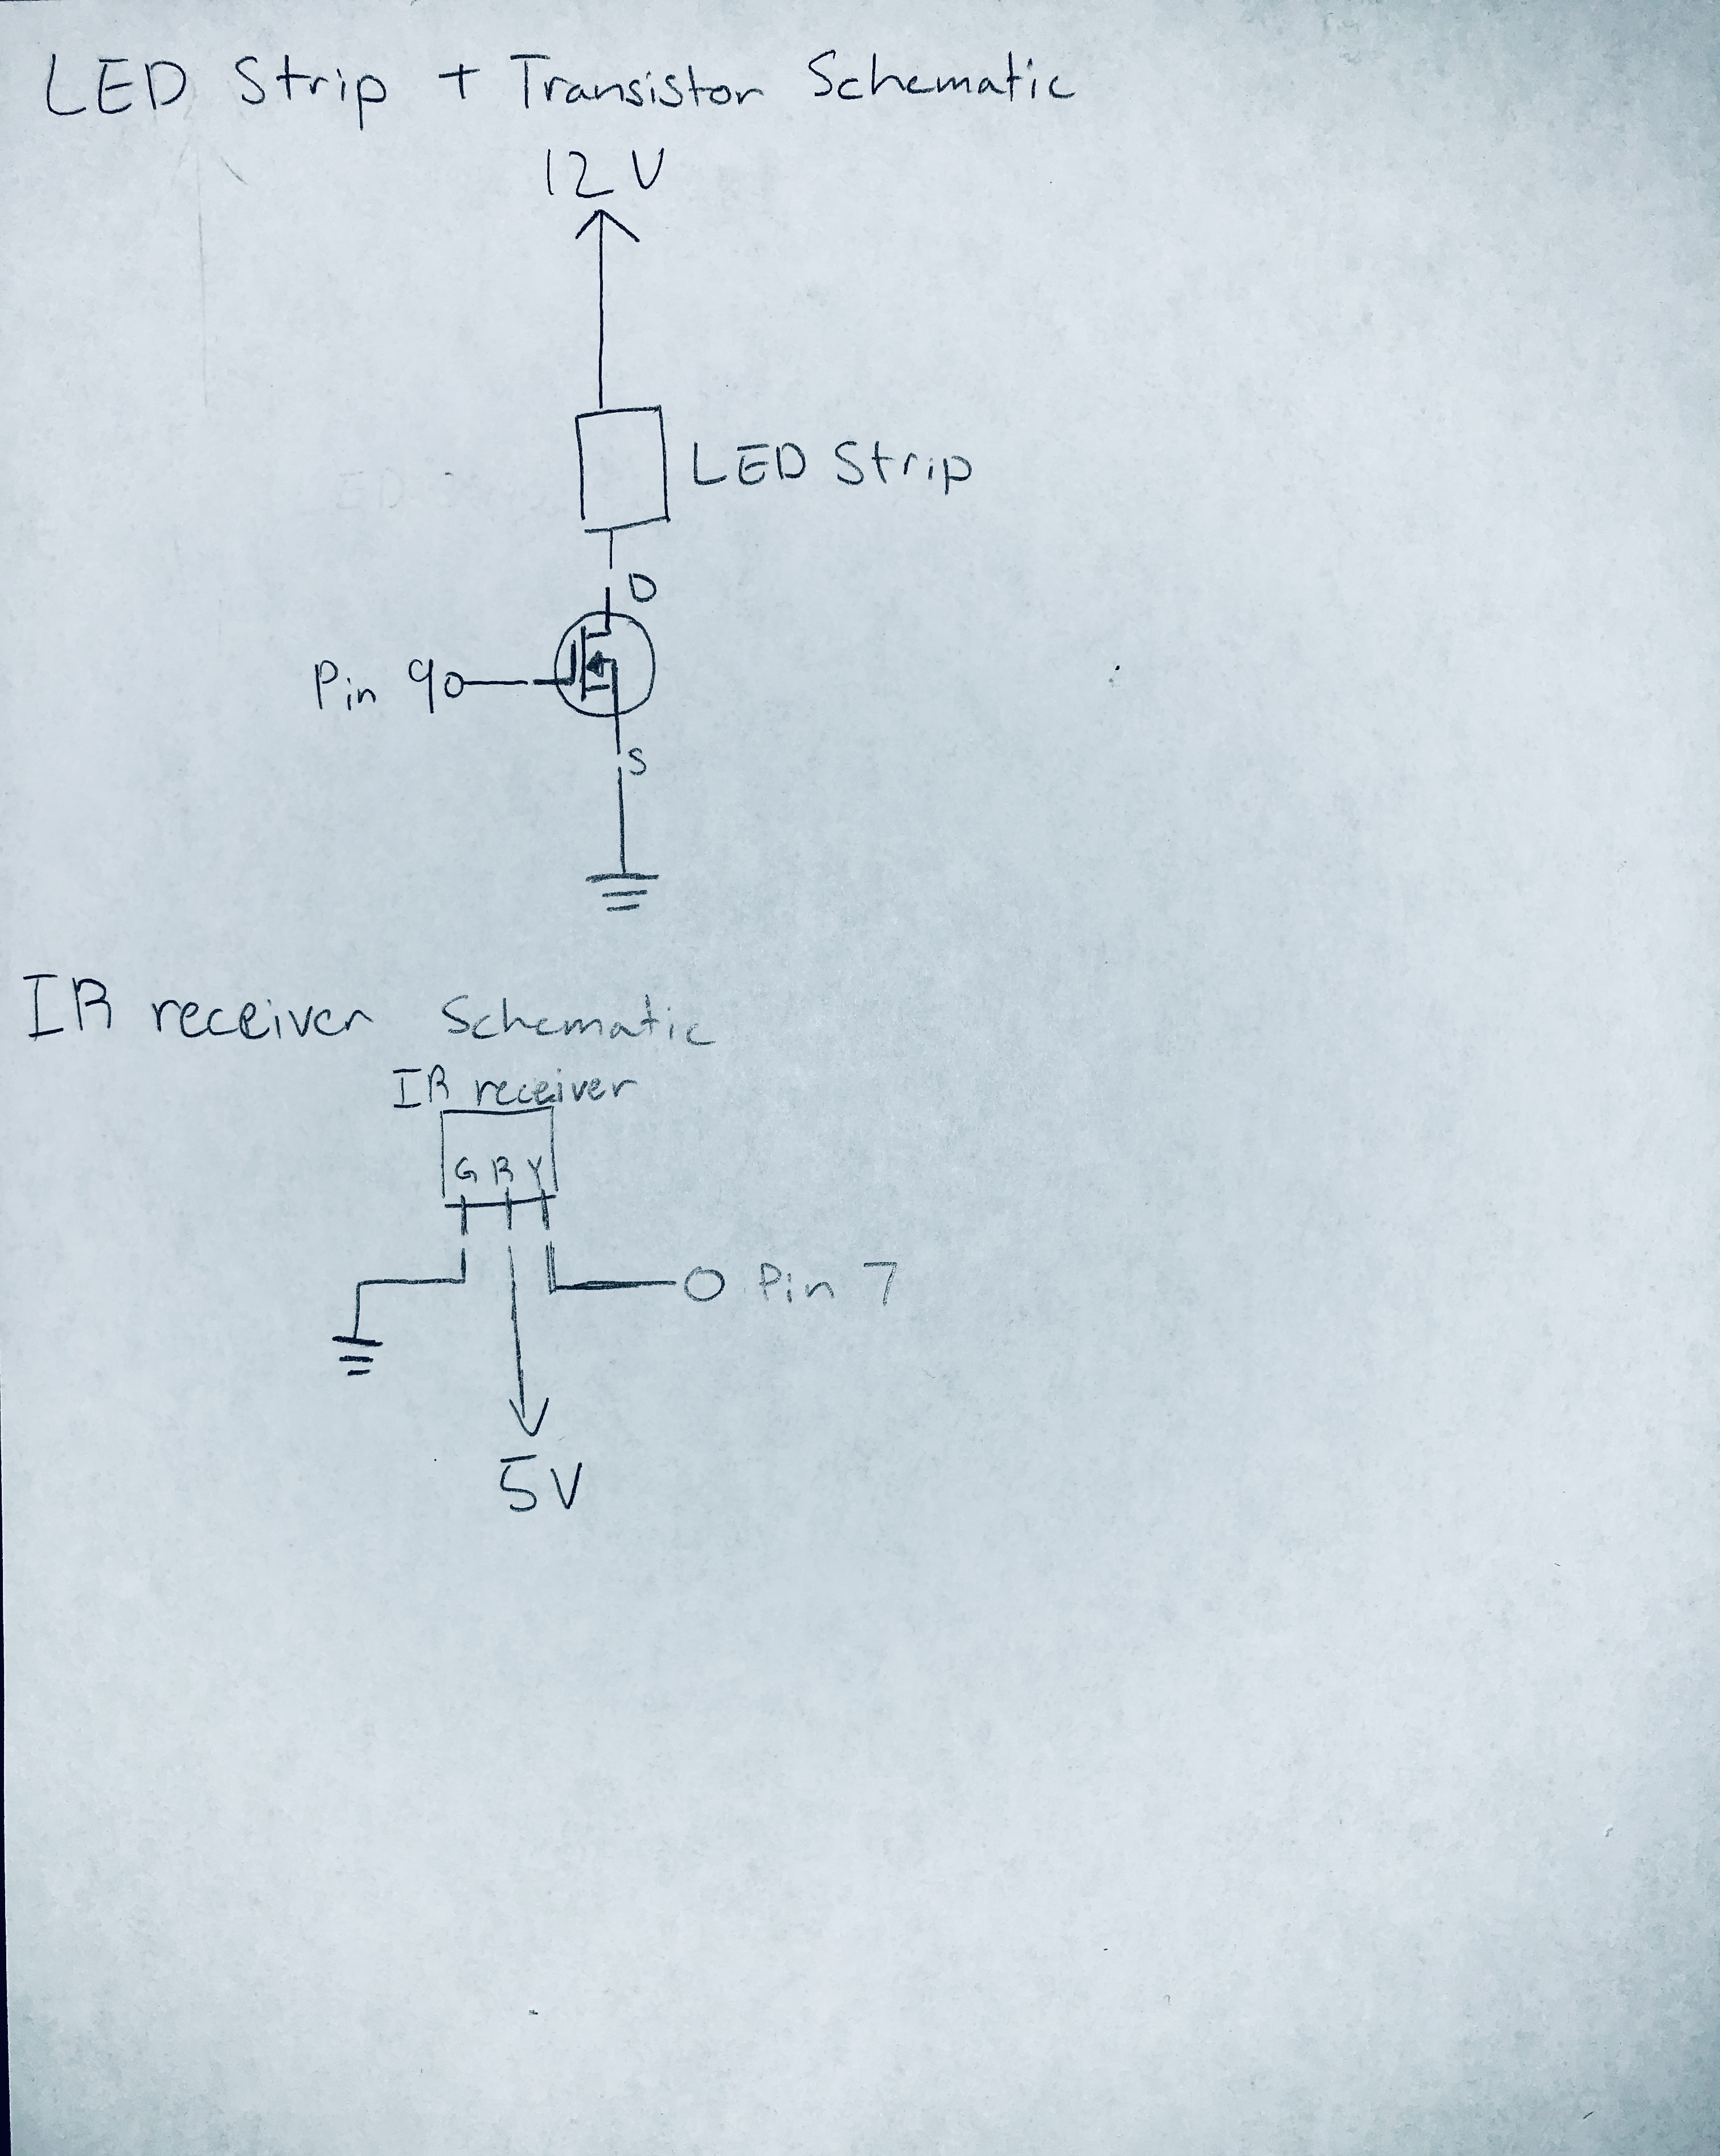 LED Strip + Transistor Schematic
12V
LED Strip
D
Pin 9
S
IR receiver Schematic
IR receiver
G R Y
Pin 7
5V